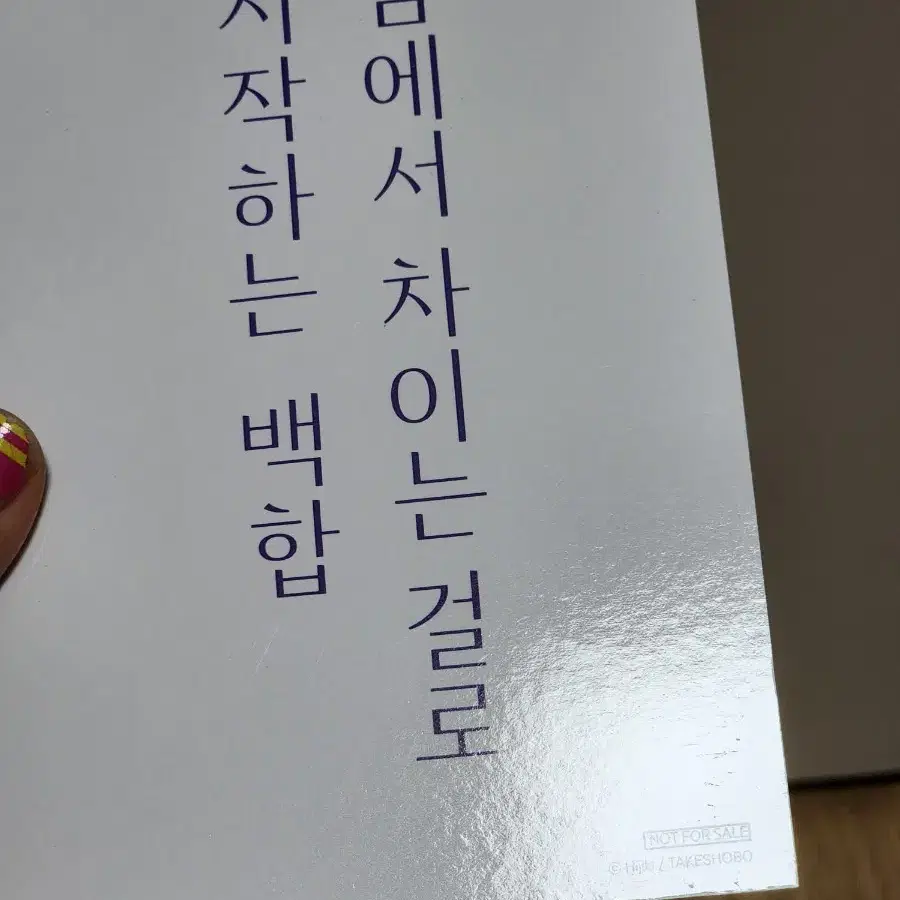 에서 차이는 걸로
시작하는 백합
NOT FOR SALE
© Hijiki / TAKESHOBO